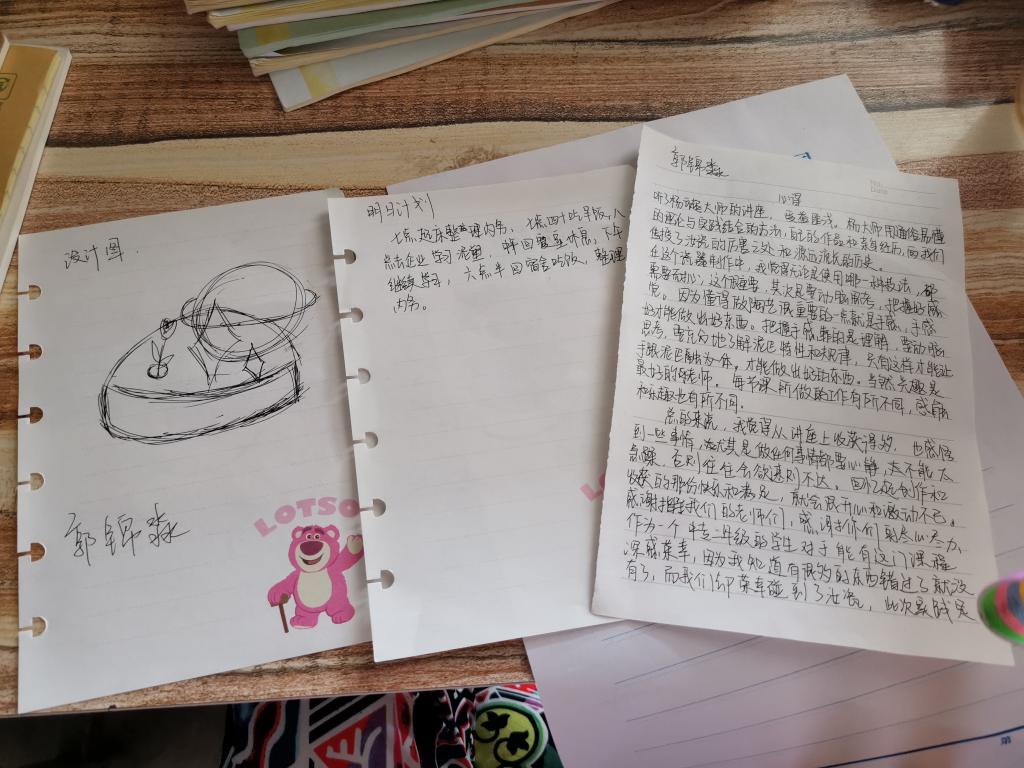 设计图
郭锦淼
LOTSO
明日计划
七点起床整理内务，七点四十吃早饭，八
点去企业学习流塑，中午回寝室休息，下午
继续学习，六点半回宿舍吃饭，整理
内务。
郭锦淼
心得
听了杨大师的讲座，受益匪浅，杨大师用通俗易懂
的理论与实践结合的方法，自己的作品和亲身经历，向我们
传授了汝瓷的厉害之处和源远流长的历史。
在这个瓷器制作中，我觉得无论是使用哪一种技法，都
需要耐心，这个很重要，其次是要动脑思考，把握好感
觉。因为懂得做陶艺很重要的一点就是手感，手感
好才能做出好东西。把握手感靠的是理解，要动脑
思考，要充分地了解泥巴特性和规律，只有这样才能让
手跟泥巴融为一体，才能做出好的东西。当然兴趣是
最好的老师。每节课所做的工作有所不同，感触
和乐趣也有所不同。
总的来说，我觉得从讲座上收获得多，也感悟
到一些事情，尤其是做任何事情都要心静，太不能太
急躁，否则往往会欲速则不达。回忆起创作和
收获的那份快乐和满足，就会展开心和激动不已。
感谢指导我们的老师们，感谢你们的尽心尽力，
作为一个年级的学生对于能有这门课程
深感荣幸，因为我知道有很多的东西错过了就没
有了，而我们却荣幸碰到了汝瓷，此次实践实
第